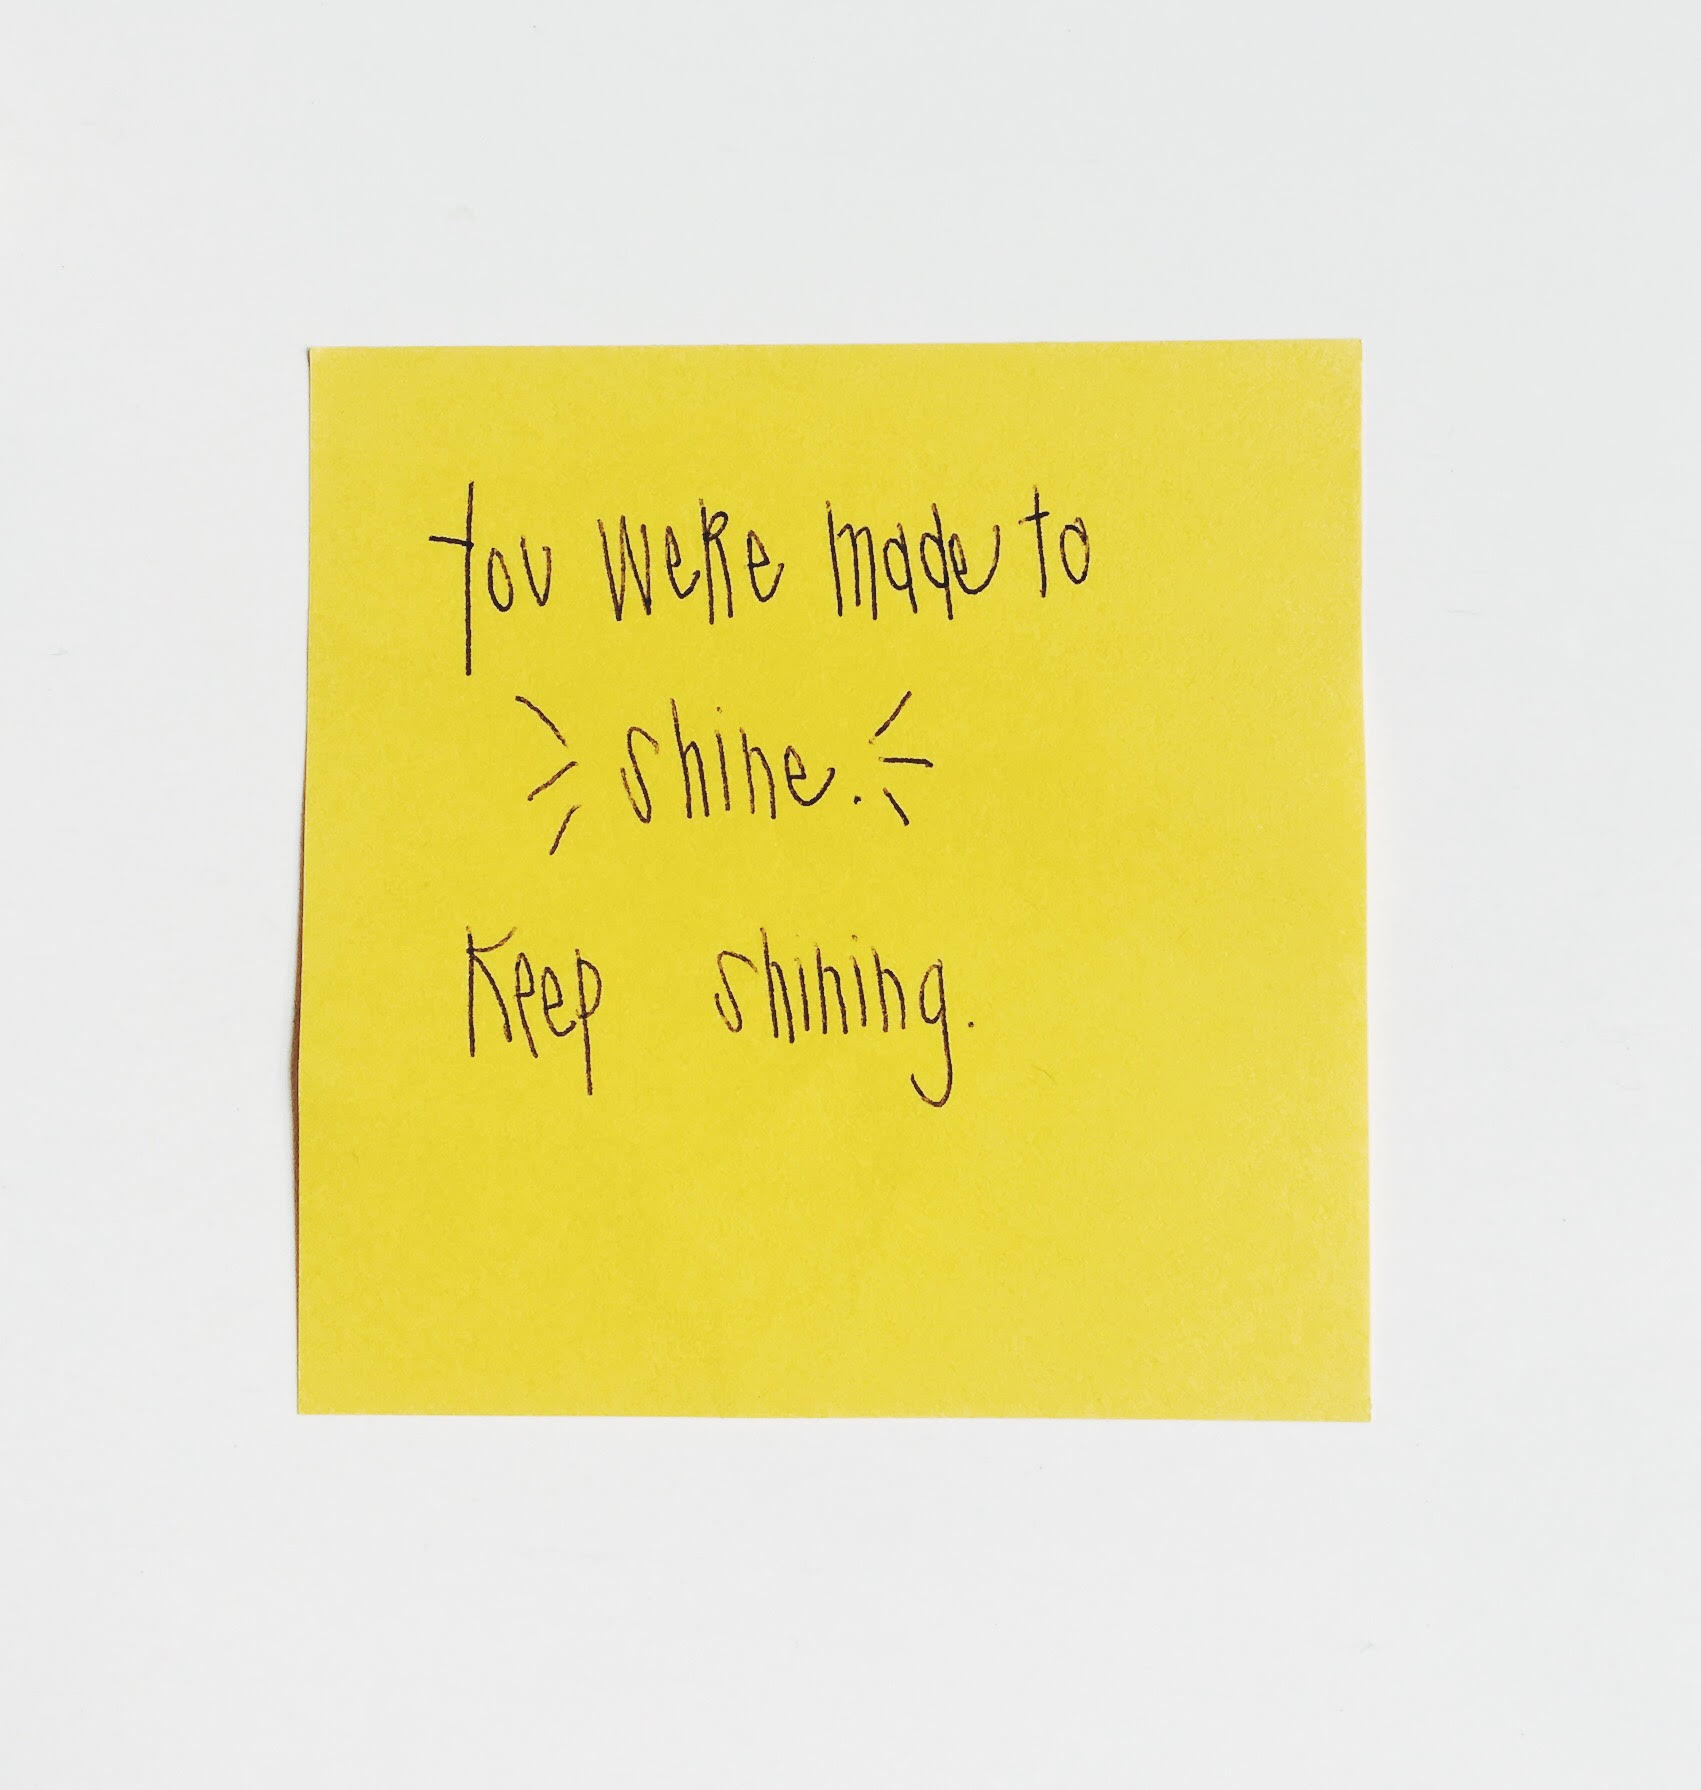 You were made to
shine.
Keep shining.